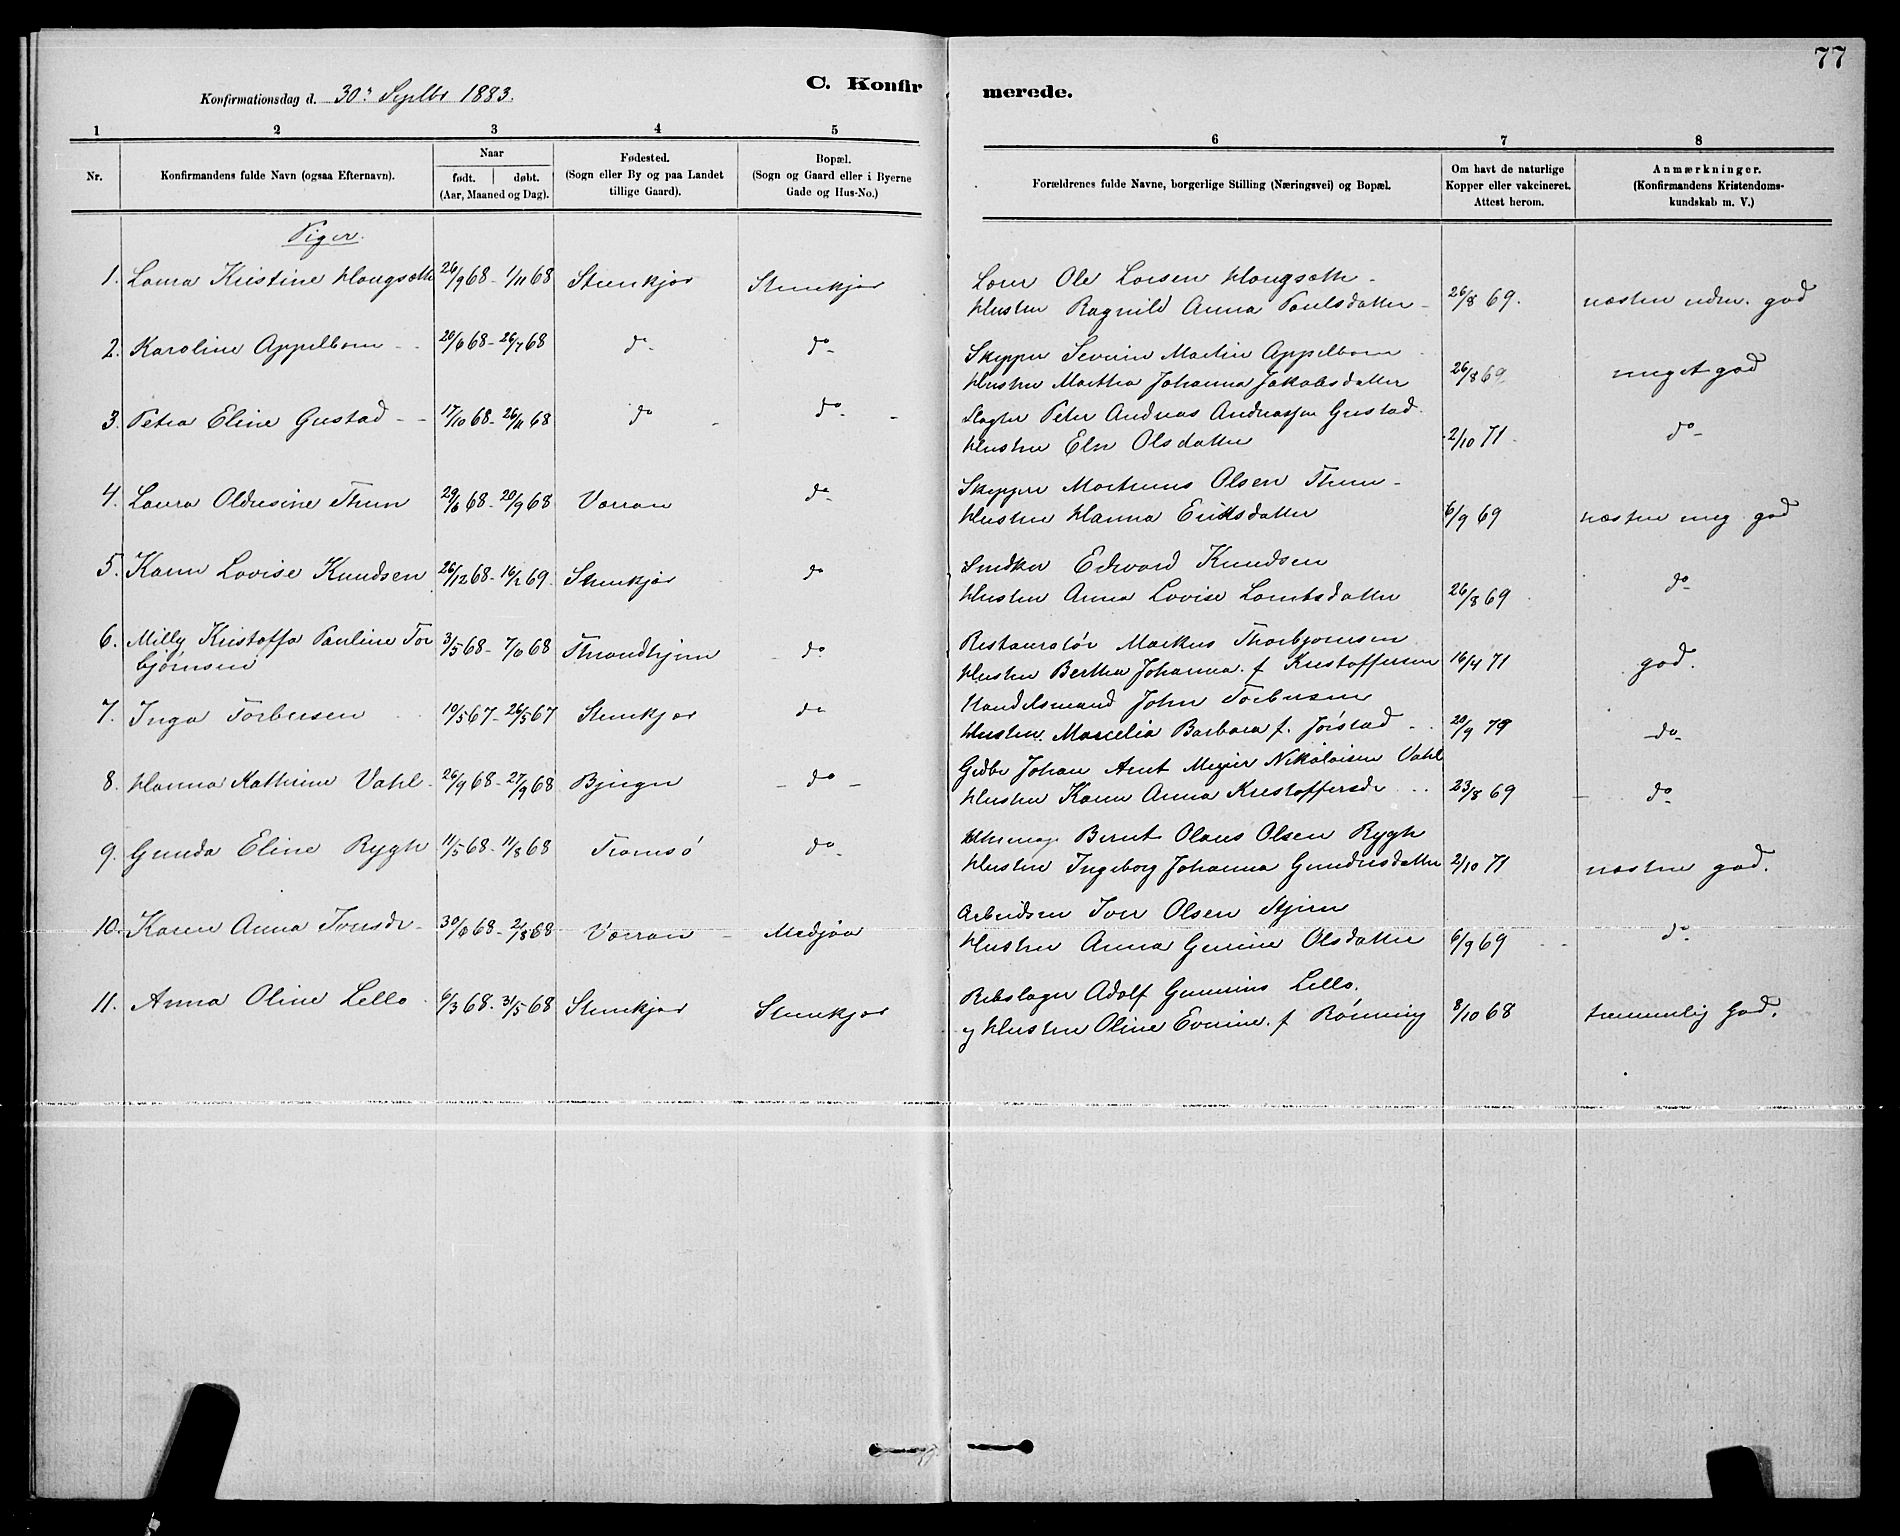 77
C. Konfirmerede.
Konfirmationsdag d. 30. Septbr 1883.
1 2 3 4 5 6 7 8
Nr. Konfirmandens fulde Navn (ogsaa Efternavn). Naar født. døbt. (Aar, Maaned og Dag). Fødested. (Sogn eller By og paa Landet tillige Gaard). Bopæl. (Sogn og Gaard eller i Byerne Gade og Hus-No.) Forældrenes fulde Navne, borgerlige Stilling (Næringsvei) og Bopæl. Om havt de naturlige Kopper eller vakcineret. Attest herom. Anmærkninger. (Konfirmandens Kristendomskundskab m. V.)
Piger.
1. Laura Kristine Haugsæth 26/9 68 - 1/11 68 Stenkjær Stenkjær Ole Larsen Haugsæth -
Hustru Ragnild Anna Paulsdatter - 26/8 69. næsten udm. god
2. Karoline Appelbom - 20/6 68 - 26/7 68 do do Skipper Severin Martin Appelbom
Hustru Martha Johanna Jakobsdatter 26/8 69 meget god
3. Petra Eline Gustad - - 17/10 68 - 26/11 68 do do - Slagter Peter Andreas Andreassen Gustad
Hustru Elen Olsdatter 2/10 71 do
4. Laura Oldusine Thun 29/6 68 - 20/9 68 Værran do Skipper Martinus Olsen Thun -
Hustru Hanna Eriksdatter 6/9 69 næsten meg. god
5. Karen Lovise Knudsen 26/12 68 - 16/2 69. Stenkjær do Snedker Edvard Knudsen
Hustru Anna Lovise Lorntsdatter 26/8 69 do
6. Milly Kristoffa Pauline Torbjørnsen 3/5 68 - 7/6 68 Throndhjem do Restauratør Markus Thorbjørnsen
Hustru Bertha Johanna f. Kristoffersen 16/4 71 god.
7. Inga Torbersen 19/5 67 - 26/5 67 Stenkjær do Handelsmand John Torbersen
Hustru Marcelia Barbara f. Jørstad 20/9 79 do
8. Hanna Kathrine Vahl 26/9 68 - 27/9 68 Bjugn - do - Gdbr Johan Arnt Meyer Nikolaisen Vahl
Hustru Karen Anna Kristoffersdr 23/8 69 do
9. Gunda Eline Rygh 11/5 68 - 11/8 68 Tromsø do Bernt Olaus Olsen Rygh
Hustru Ingeborg Johanna Gundersdatter 2/10 71 næsten god.
10. Karen Anna Iversdr - 30/6 68 - 2/8 68 Værran - Medjåa Arbeidsm Iver Olsen Stjern
Hustru Anna Gurine Olsdatter 6/9 69 do
11. Anna Oline Lello 6/3 68. 31/5 68 Stenkjær Stenkjær Rebslager Adolf Gunerius Lello.
og Hustru Oline Evrine f Rønning 8/10 68 temmelig god.